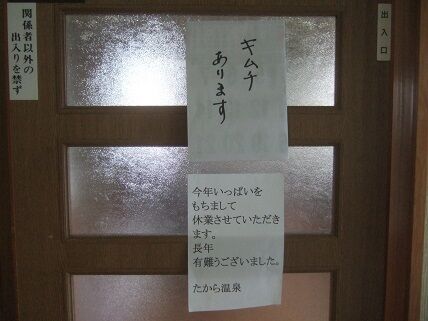 関係者以外の
出入りを禁ず
出入口
キムチ
あります
今年いっぱいを
もちまして
休業させていただき
ます。
長年
有難うございました。
たから温泉